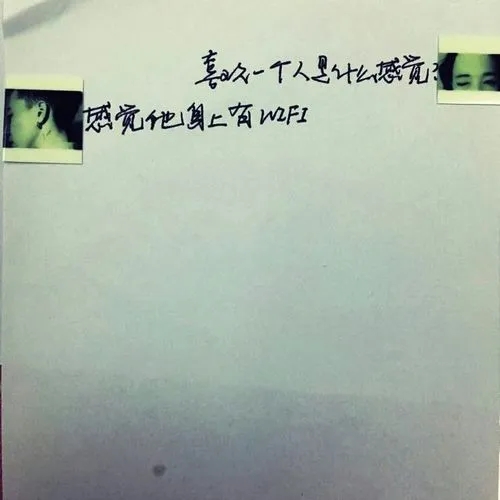 喜欢一个人是什么感觉?
感觉他身上有WIFI